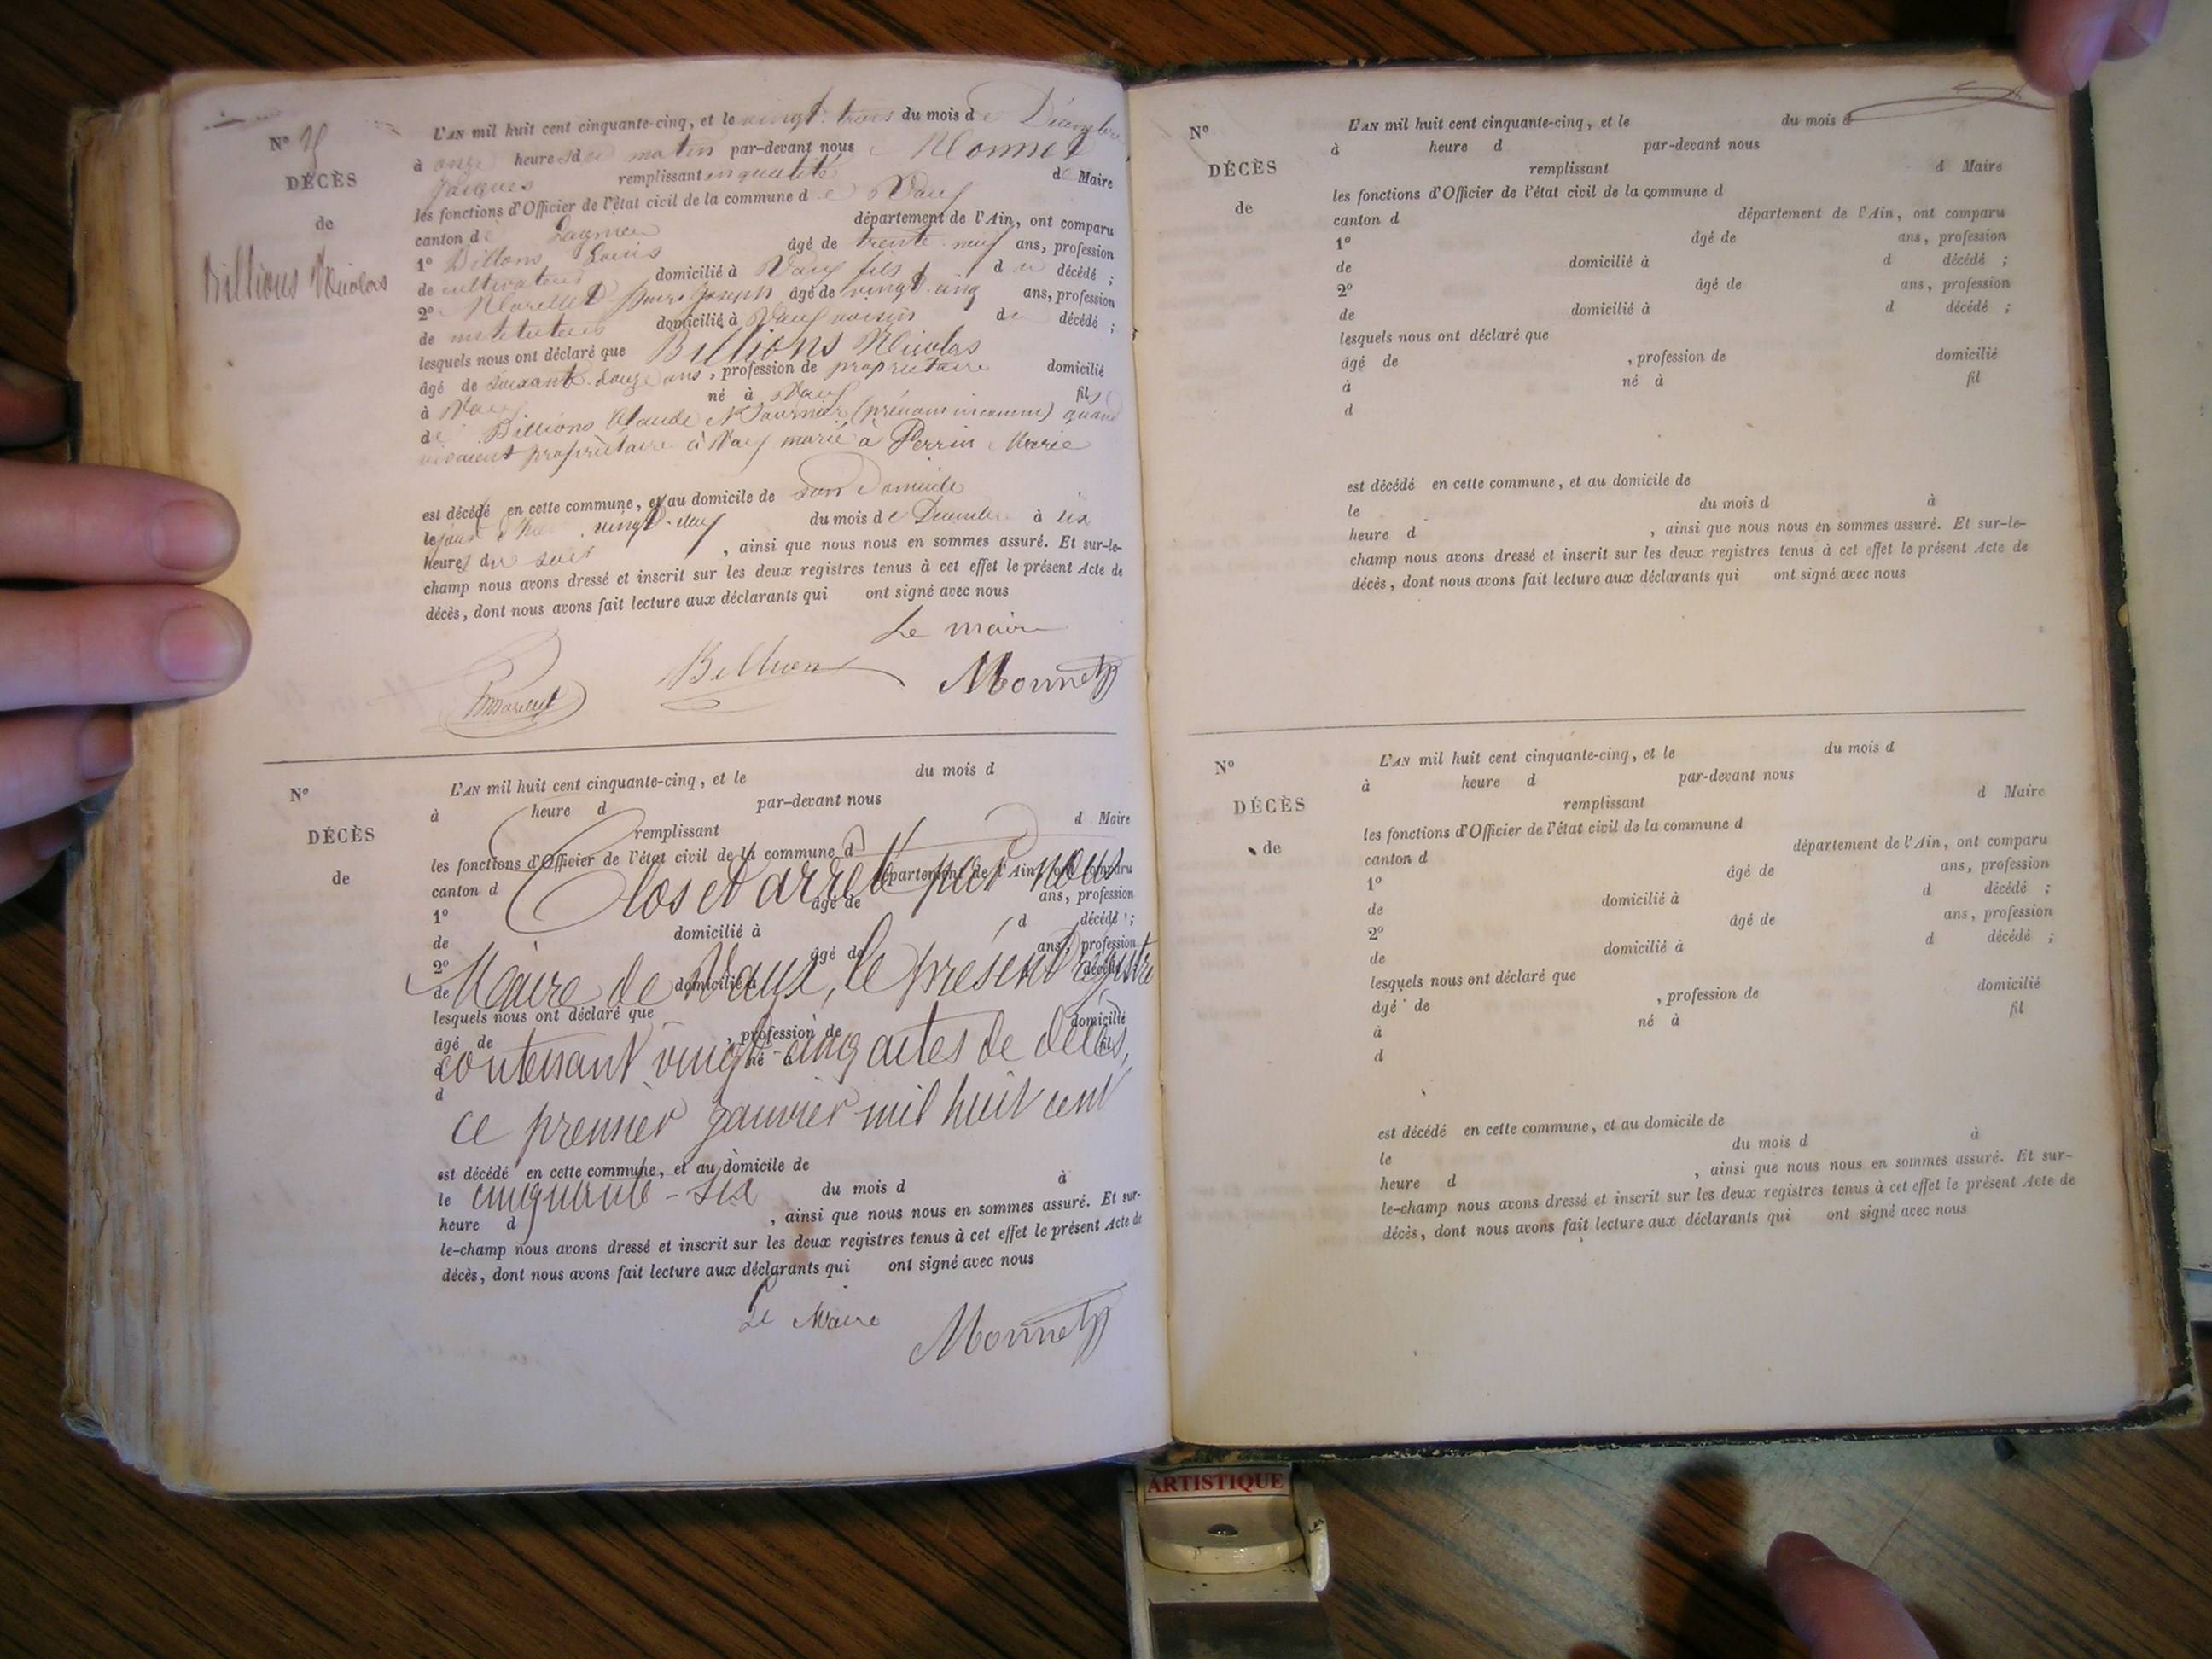 N° 25
DÉCÈS
de
Billions Nicolas
L'AN mil huit cent cinquante-cinq, et le vingt trois du mois de Décembre
à onze heures du matin par-devant nous Monnet
Jacques remplissant en qualité de Maire
les fonctions d'Officier de l'état civil de la commune de Vaux
canton de Lagnieu département de l'Ain, ont comparu
1° Billons Louis âgé de trente neuf ans, profession
de cultivateur domicilié à Vaux fils du décédé ;
2° Marellet Joseph âgé de vingt cinq ans, profession
de instituteur domicilié à Vaux voisin du décédé ;
lesquels nous ont déclaré que Billions Nicolas
âgé de soixante douze ans, profession de propriétaire domicilié
à Vaux né à Vaux fils
de Billions Claude et Fournier (prénom inconnu) quand
vivaient propriétaire à Vaux marié à Perrin Marie
est décédé en cette commune, et au domicile de son domicile
le vingt-deux du mois de Décembre à six
heures du soir, ainsi que nous nous en sommes assuré. Et sur-le-
champ nous avons dressé et inscrit sur les deux registres tenus à cet effet le présent Acte de
décès, dont nous avons fait lecture aux déclarants qui ont signé avec nous
Le maire
Billion Monnet
N°
DÉCÈS
de
L'AN mil huit cent cinquante-cinq, et le du mois d
à heure d par-devant nous
remplissant d Maire
les fonctions d'Officier de l'état civil de la commune d
Clos et arrêté par nous
canton d département de l'Ain, ont comparu
1° âgé de ans, profession
de domicilié à d décédé ;
2° âgé de ans, profession
Maire de Vaux, le présent registre
de domicilié à d décédé ;
lesquels nous ont déclaré que
âgé de , profession de domicilié
contenant vingt-cinq actes de décès,
à né à fil
d
ce premier janvier mil huit cent
est décédé en cette commune, et au domicile de
cinquante-six
le du mois d à
heure d , ainsi que nous nous en sommes assuré. Et sur-
le-champ nous avons dressé et inscrit sur les deux registres tenus à cet effet le présent Acte de
décès, dont nous avons fait lecture aux déclarants qui ont signé avec nous
Le Maire
Monnet
N°
DÉCÈS
de
L'AN mil huit cent cinquante-cinq, et le du mois d
à heure d par-devant nous
remplissant d Maire
les fonctions d'Officier de l'état civil de la commune d
canton d département de l'Ain, ont comparu
1° âgé de ans, profession
de domicilié à d décédé ;
2° âgé de ans, profession
de domicilié à d décédé ;
lesquels nous ont déclaré que
âgé de , profession de domicilié
à né à fil
d
est décédé en cette commune, et au domicile de
le du mois d à
heure d , ainsi que nous nous en sommes assuré. Et sur-le-
champ nous avons dressé et inscrit sur les deux registres tenus à cet effet le présent Acte de
décès, dont nous avons fait lecture aux déclarants qui ont signé avec nous
N°
DÉCÈS
de
L'AN mil huit cent cinquante-cinq, et le du mois d
à heure d par-devant nous
remplissant d Maire
les fonctions d'Officier de l'état civil de la commune d
canton d département de l'Ain, ont comparu
1° âgé de ans, profession
de domicilié à d décédé ;
2° âgé de ans, profession
de domicilié à d décédé ;
lesquels nous ont déclaré que
âgé de , profession de domicilié
à né à fil
d
est décédé en cette commune, et au domicile de
le du mois d à
heure d , ainsi que nous nous en sommes assuré. Et sur-
le-champ nous avons dressé et inscrit sur les deux registres tenus à cet effet le présent Acte de
décès, dont nous avons fait lecture aux déclarants qui ont signé avec nous
ARTISTIQUE